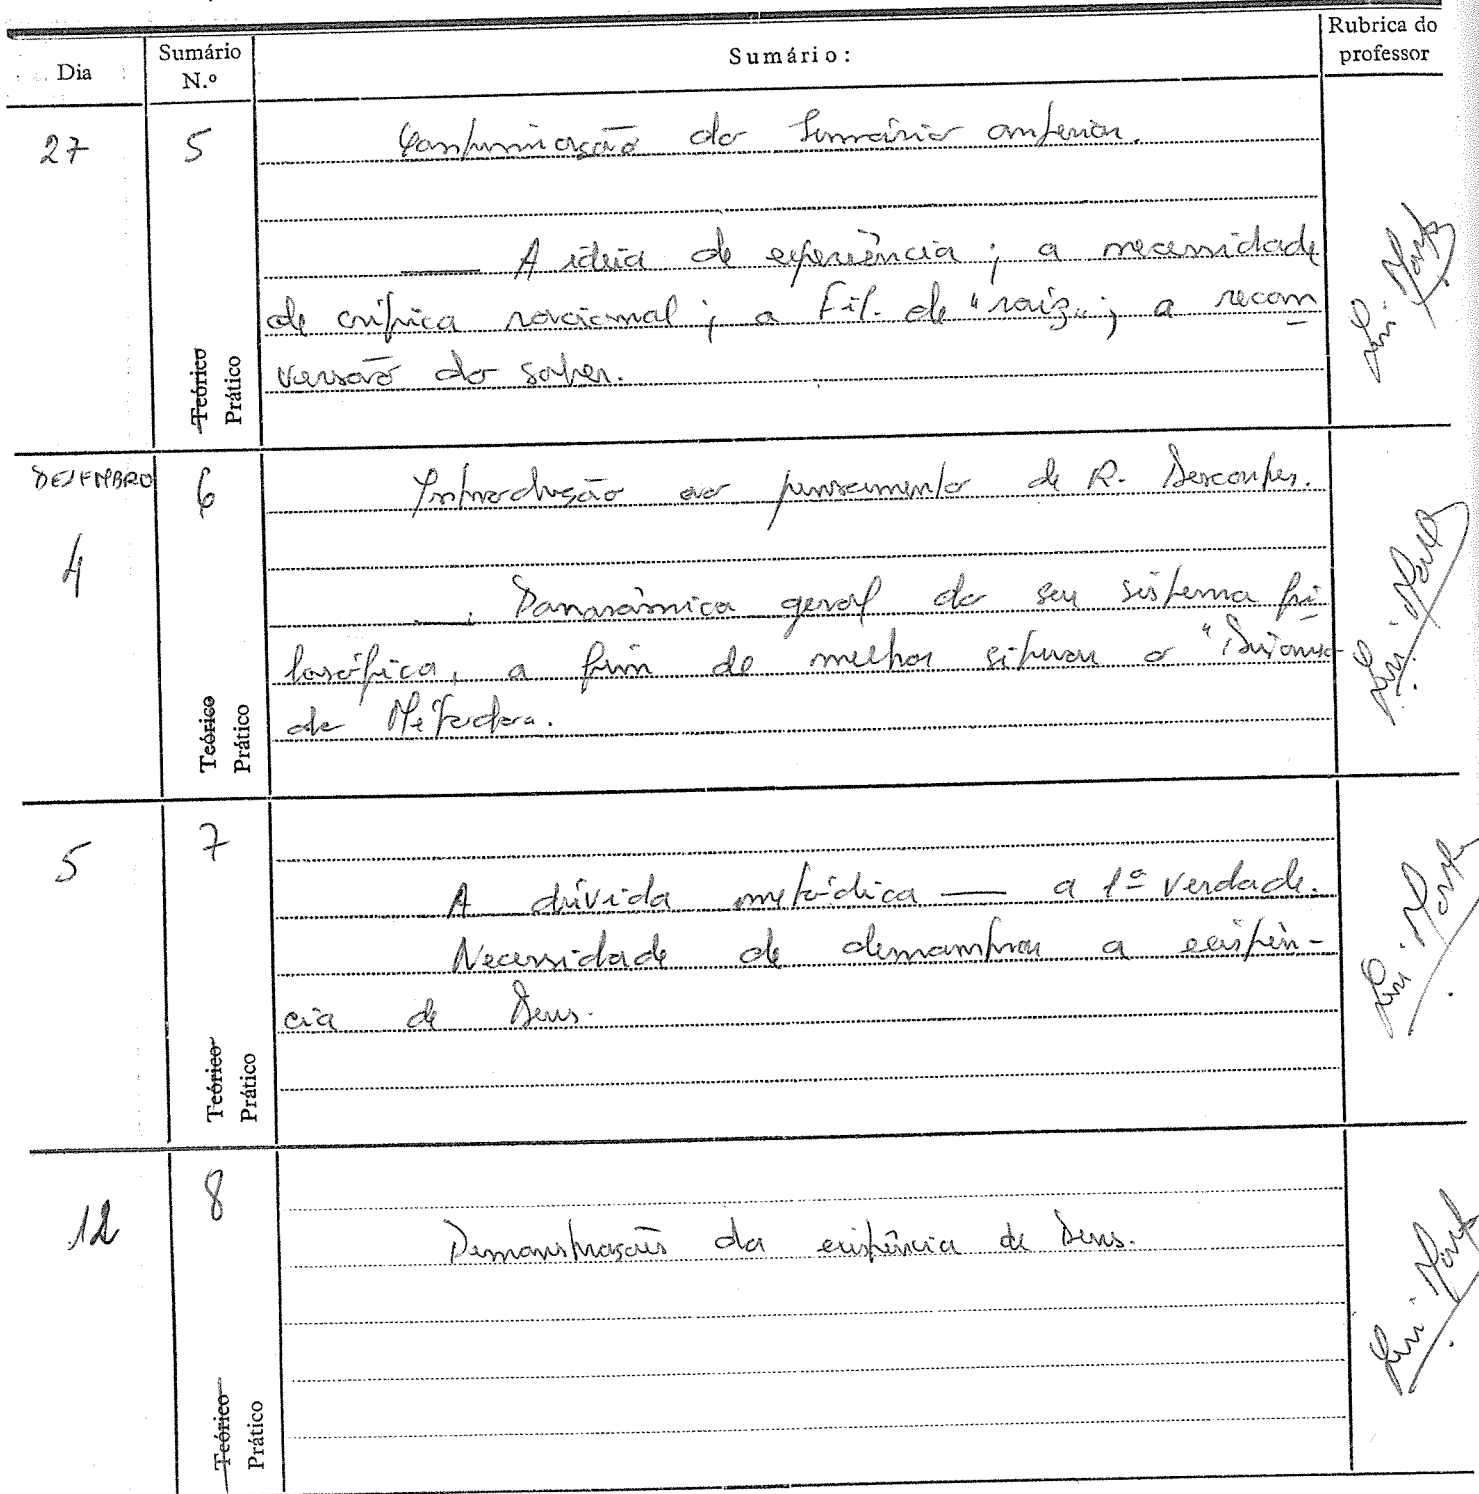 Dia
Sumário N.º
Sumário:
Rubrica do professor
27
5
Teórico
Prático
Continuação do Sumário anterior.
— A ideia de experiência; a necessidade
de crítica racional; a Fil. de "raiz"; a recon
versão do saber.
DEZEMBRO
4
6
Teórico
Prático
Introdução ao pensamento de R. Descartes.
—. Panorâmica geral do seu sistema fi
losófico, a fim de melhor situar o "Discurso
do Método".
5
7
Teórico
Prático
A dúvida metódica — a 1ª verdade.
Necessidade de demonstrar a existên-
cia de Deus.
12
8
Teórico
Prático
Demonstrações da existência de Deus.